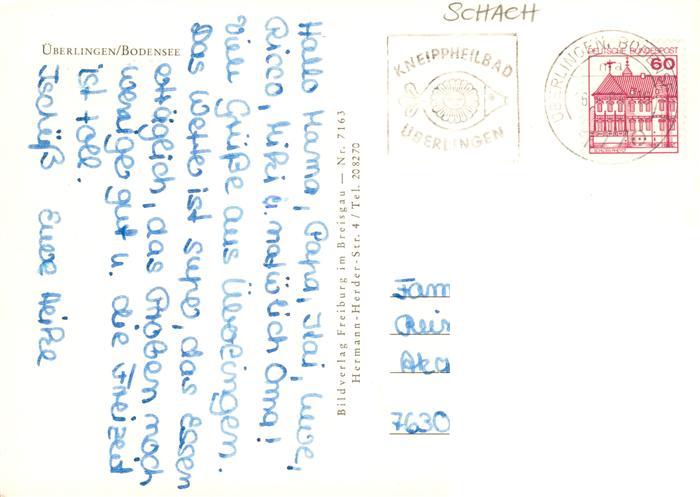 SCHACH
ÜBERLINGEN/BODENSEE
Hallo Mama, Papa, Kai, Uwe,
Ricco, Kiki u. natürlich Oma!
Viele Grüße aus Überlingen.
Das Wetter ist super, das Essen
erträglich, das Proben noch
weniger gut u. die Freizeit
ist toll.
Tschüß Eure Heike
Bildverlag Freiburg im Breisgau — Nr. 7163
Hermann-Herder-Str. 4 / Tel. 208270
KNEIPPHEILBAD
ÜBERLINGEN
ÜBERLINGEN, BODENSEE
DEUTSCHE BUNDESPOST
60
Fam
Rei
Aka
7630